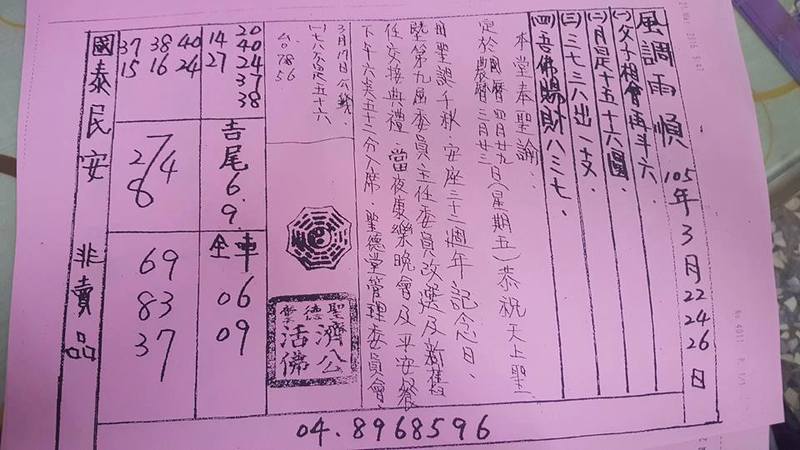 風調雨順 105年3月22 24 26日
(一)父子相會再斗六.
(二)月是十五十六圓.
(三)三七三六出一支.
(四)吾佛賜財八三七.
本堂奉聖諭.
定於國曆四月廿九日(星期五)恭祝天上聖
農曆三月廿三
母聖誕千秋.安座三十二週年記念日.
暨第九屆委員主任委員改選及新舊
任交接典禮.當夜康樂晚會及平安餐
下午六點五十二分入席.聖德堂管理委員會
3月17日公
台 786
5.
聖德堂
濟公
活佛
20
40
24
37
38
14
27
40
24
38
16
37
15
吉尾6.
9.
2/4
8
全車
06
09
69
83
37
國泰民安 非賣品
04.8968596